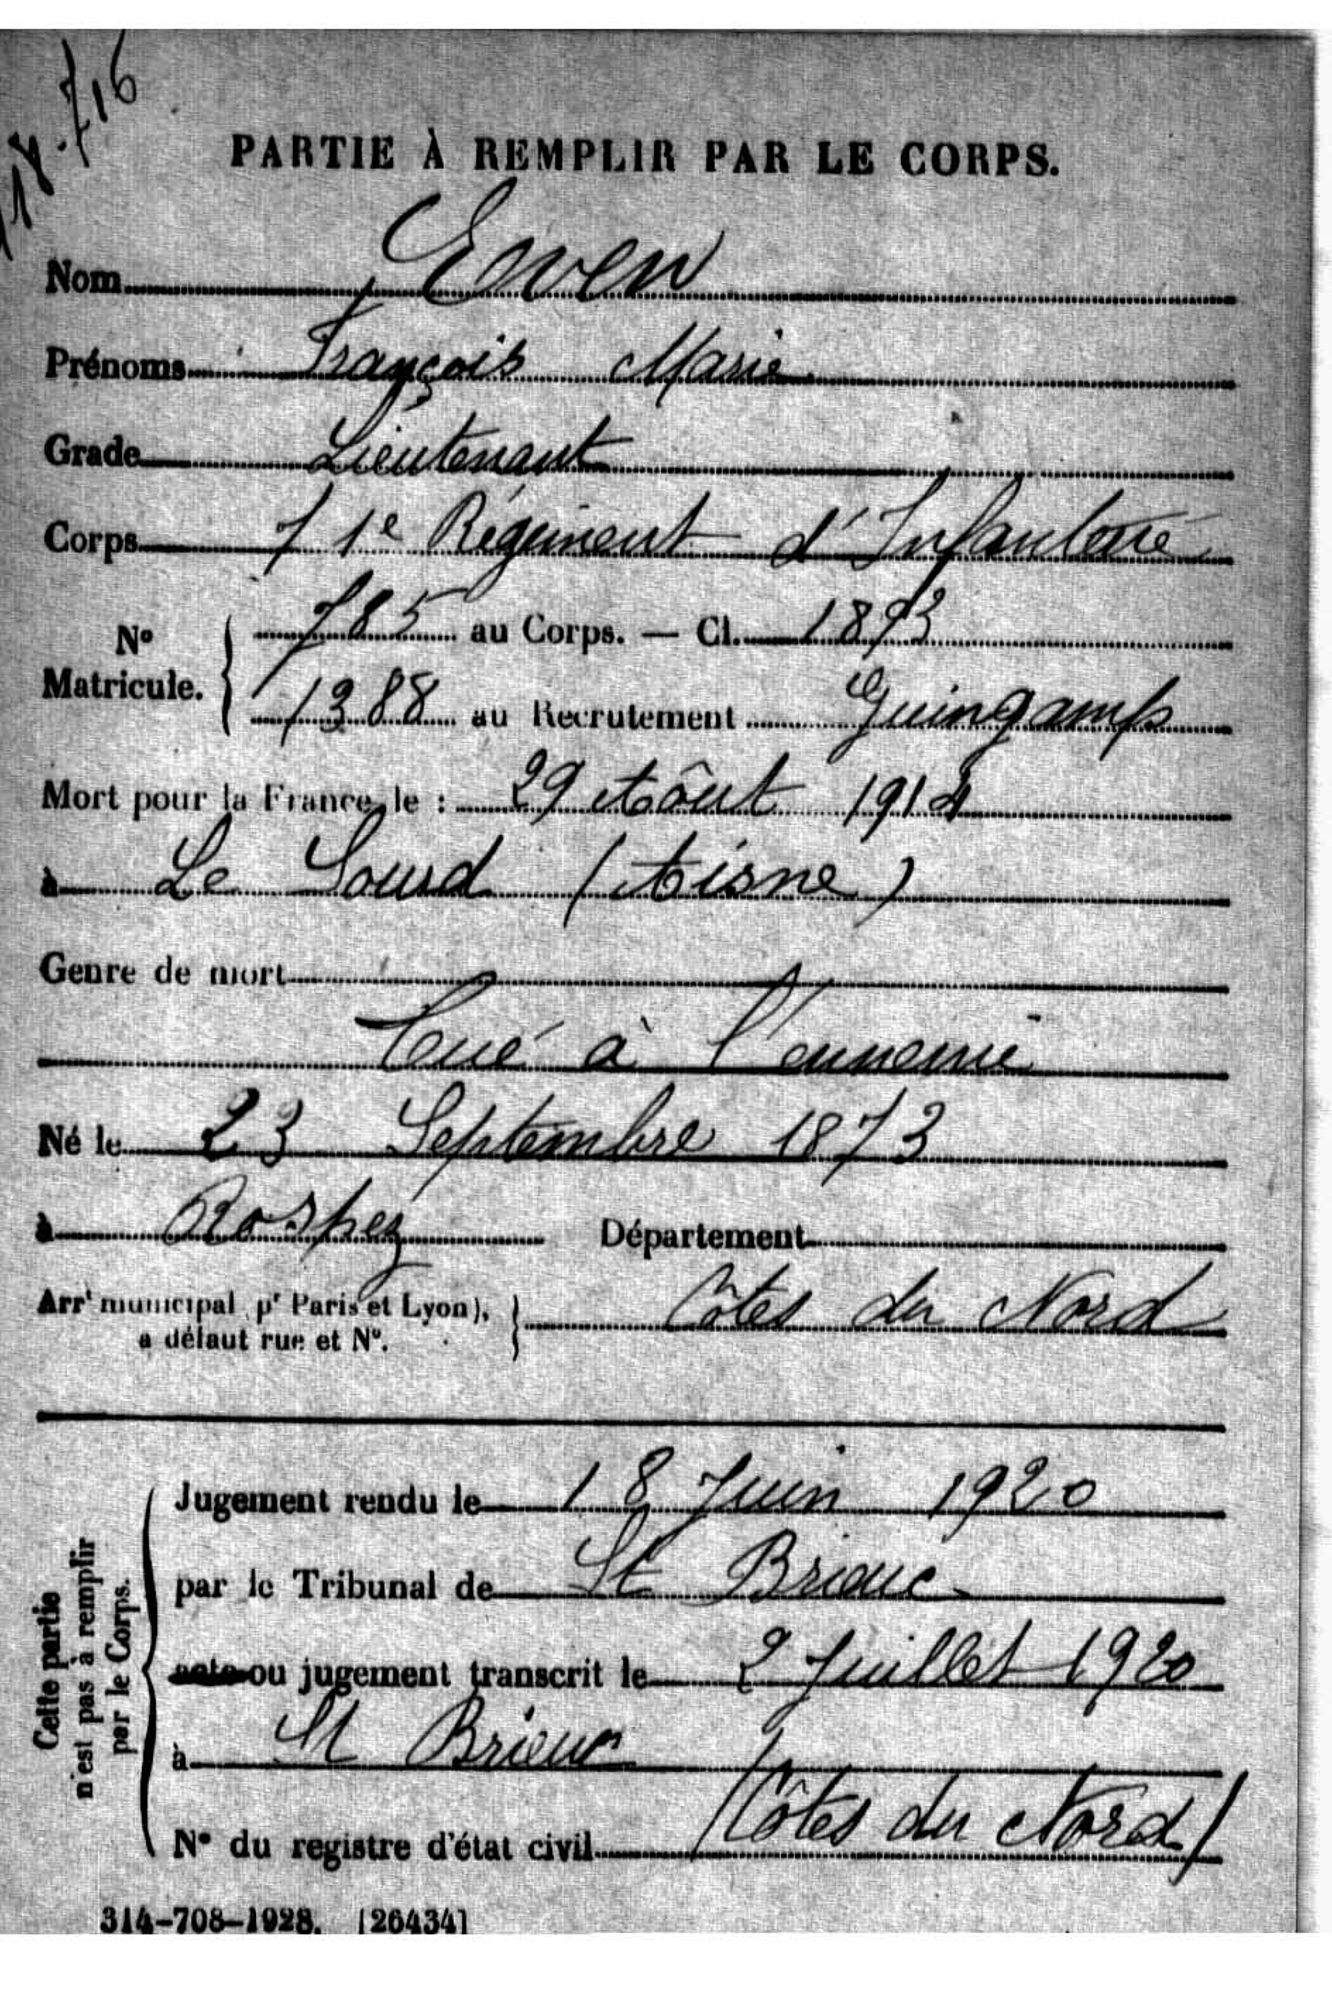 18.716
PARTIE À REMPLIR PAR LE CORPS.
Nom Even
Prénoms François Marie
Grade Lieutenant
Corps 71e Régiment d'Infanterie
No Matricule. { 785 au Corps. — Cl. 1893
1388 au Recrutement Guingamp
Mort pour la France le : 29 Août 1914
à Le Sourd (Aisne)
Genre de mort
Tué à l'ennemi
Né le 23 Septembre 1873
à Rospez Département
Arrt municipal pr Paris et Lyon), a défaut rue et No. } Côtes du Nord
Cette partie n'est pas à remplir par le Corps.
Jugement rendu le 18 Juin 1920
par le Tribunal de St Brieuc
acte ou jugement transcrit le 2 Juillet 1920
à St Brieuc
No du registre d'état civil (Côtes du Nord)
314-708-1928. [26434]